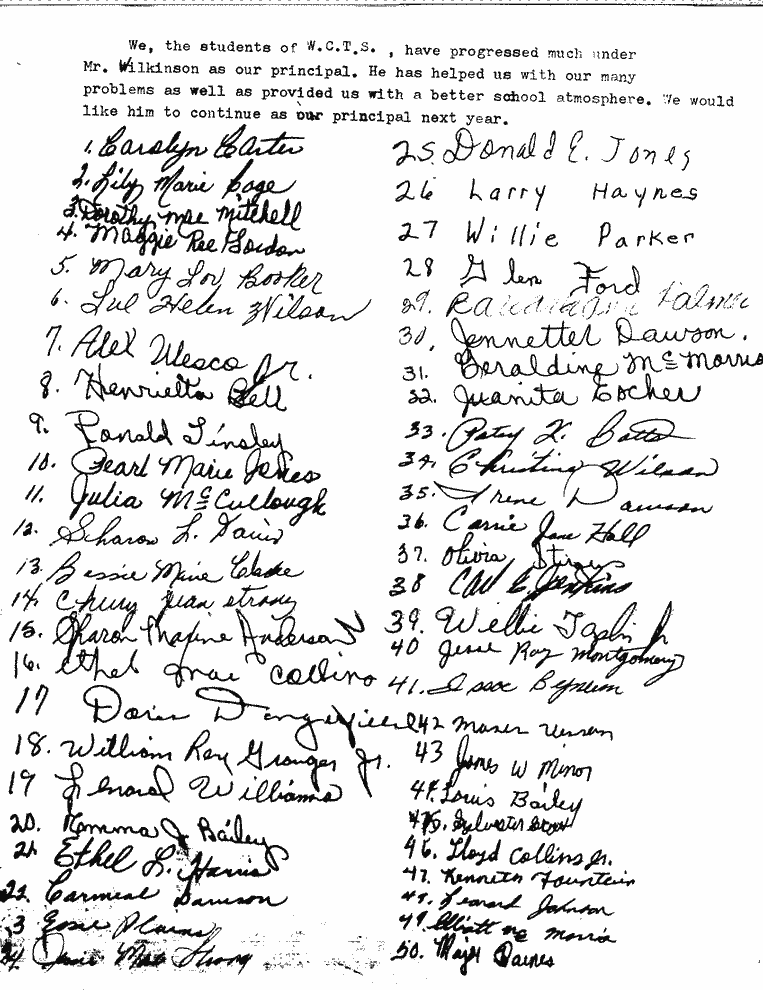 We, the students of W.C.T.S. , have progressed much under
Mr. Wilkinson as our principal. He has helped us with our many
problems as well as provided us with a better school atmosphere. We would
like him to continue as our principal next year.
1. Carolyn Carter
2. Lily Marie Page
3. Dorothy Mae Mitchell
4. Maggie Ree Gordon
5. Mary Lou Booker
6. Lue Helen Wilson
7. Alex Wesco Jr.
8. Henrietta Bell
9. Ronald Tinsley
10. Pearl Marie Jones
11. Julia McCullough
12. Sharon L. Davis
13. Bessie Marie
14. Jean Strong
15. Sharon Maxine Anderson
16. Ethel Mae Collins
17 Doris Dangerfield
18. William Ray Granger Jr.
19 Lenord Williams
20. J Bailey
21. Ethel L. Harris
22. Carmeal Dawson
3
24 Mae Strong
25. Donald E. Jones
26 Larry Haynes
27 Willie Parker
28 Glen Ford
29. Palmer
30. Jennetter Dawson.
31. Geraldine McMorris
32. Juanita Escher
33. Patsy K. Batts
34. Christine Wilson
35. Irene Dawson
36. Carrie Jane Hall
37. Olivia
38 Carl E. Jenkins
39. Willie Taplin Jr
40 Jesse Ray Montgomery
41. Issac Bynum
42
43 James W Minor
44. Louis Bailey
45. Sylvester
46. Lloyd Collins Jr.
47. Kenneth Fountain
48. Leonard Johnson
49
50. Major Daines